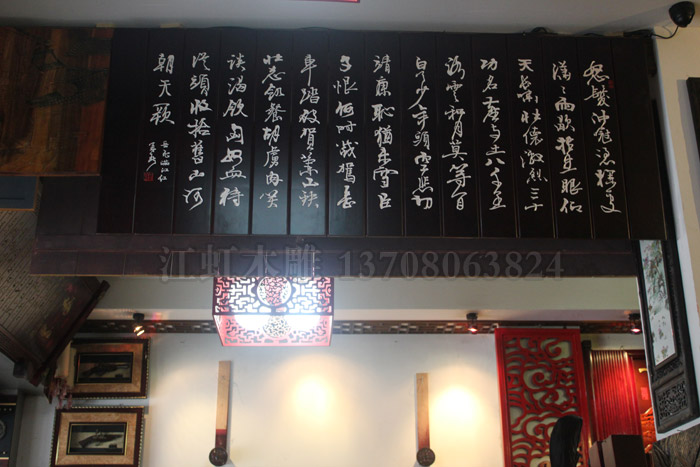 怒髮沖冠憑欄處
瀟瀟雨歇抬望眼仰
天長嘯壯懷激烈三十
功名塵與土八千里
路雲和月莫等閒
白了少年頭空悲切
靖康恥猶未雪臣
子恨何時滅駕長
車踏破賀蘭山缺
壯志飢餐胡虜肉笑
談渴飲匈奴血待
從頭收拾舊山河
朝天闕
岳飛滿江紅
江虹木雕 13708063824